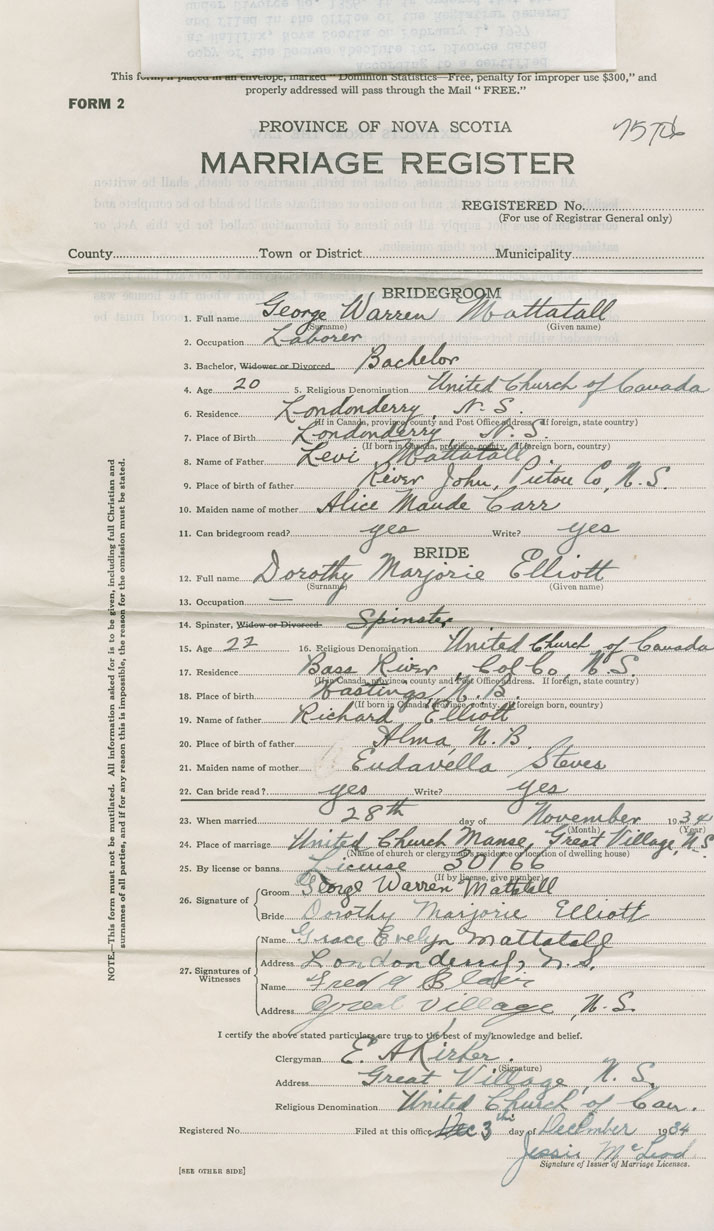 according to a certified
copy of the Decree Absolute for Divorce dated
at Halifax, Nova Scotia on February 1, 1957
and filed in the Office of the Registrar General
This form, if placed in an envelope, marked "Dominion Statistics—Free, penalty for improper use $300," and
properly addressed will pass through the Mail "FREE."
FORM 2
PROVINCE OF NOVA SCOTIA
MARRIAGE REGISTER
REGISTERED No.
(For use of Registrar General only)
County Town or District Municipality
BRIDEGROOM
1. Full name George Warren Mattatall
(Surname) (Given name)
2. Occupation Laborer
3. Bachelor, Widower or Divorced Bachelor
4. Age 20 5. Religious Denomination United Church of Canada
6. Residence Londonderry, N.S.
(If in Canada, province, county and Post Office address. If foreign, state country)
7. Place of Birth Londonderry, N.S.
(If born in Canada, province, county, if foreign born, country)
8. Name of Father Levi Mattatall
9. Place of birth of father River John, Pictou Co, N.S.
10. Maiden name of mother Alice Maude Carr
11. Can bridegroom read? yes Write? yes
BRIDE
12. Full name Dorothy Marjorie Elliott
(Surname) (Given name)
13. Occupation —
14. Spinster, Widow or Divorced Spinster
15. Age 22 16. Religious Denomination United Church of Canada
17. Residence Bass River, Col Co, N.S.
(If in Canada, province, county and Post Office address. If foreign, state country)
18. Place of birth Hastings, N.B.
(If born in Canada, province, county, if foreign born, country)
19. Name of father Richard Elliott
20. Place of birth of father Alma, N.B.
21. Maiden name of mother Eudavella Steves
22. Can bride read? yes Write? yes
23. When married 28th day of November 1934
(Month) (Year)
24. Place of marriage United Church Manse, Great Village, N.S.
(Name of church or clergyman's residence or location of dwelling house)
25. By license or banns License 30166
(If by license, give number)
26. Signature of Groom George Warren Mattatall
Bride Dorothy Marjorie Elliott
27. Signatures of Witnesses
Name Grace Evelyn Mattatall
Address Londonderry, N.S.
Name Fred A Blair
Address Great Village, N.S.
I certify the above stated particulars are true to the best of my knowledge and belief.
Clergyman E. A Kirker.
(Signature)
Address Great Village, N.S.
Religious Denomination United Church of Can.
Registered No. Filed at this office Dec 3th day of December 1934
Jessie McLeod
Signature of Issuer of Marriage Licenses.
[SEE OTHER SIDE]
NOTE.—This form must not be mutilated. All information asked for is to be given, including full Christian and
surnames of all parties, and if for any reason this is impossible, the reason for the omission must be stated.